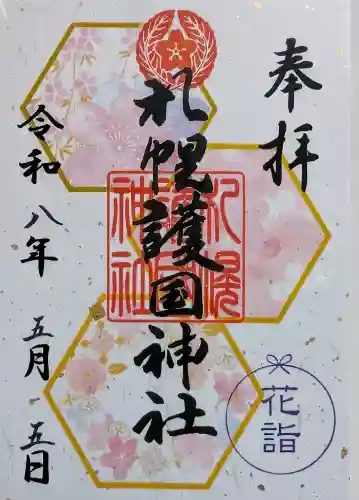 奉拝
札幌護国神社
札幌護国神社
令和八年
五月五日
花詣